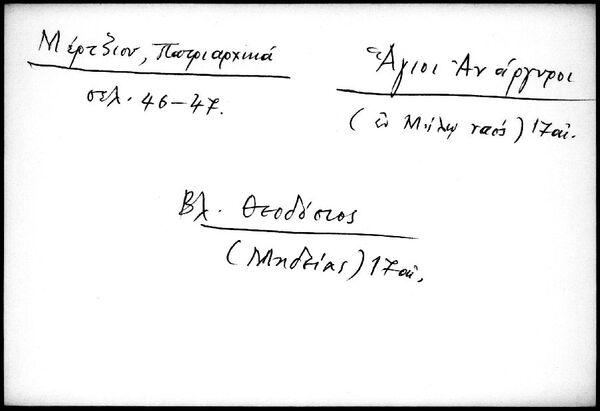 Μέρτζιου, Πατριαρχικά
σελ. 46-47.
Ἅγιοι Ἀνάργυροι
(ἐν Μήλῳ ναός) 17 αἰ.
Βλ. Θεοδόσιος
(Μηδείας) 17 αἰ.